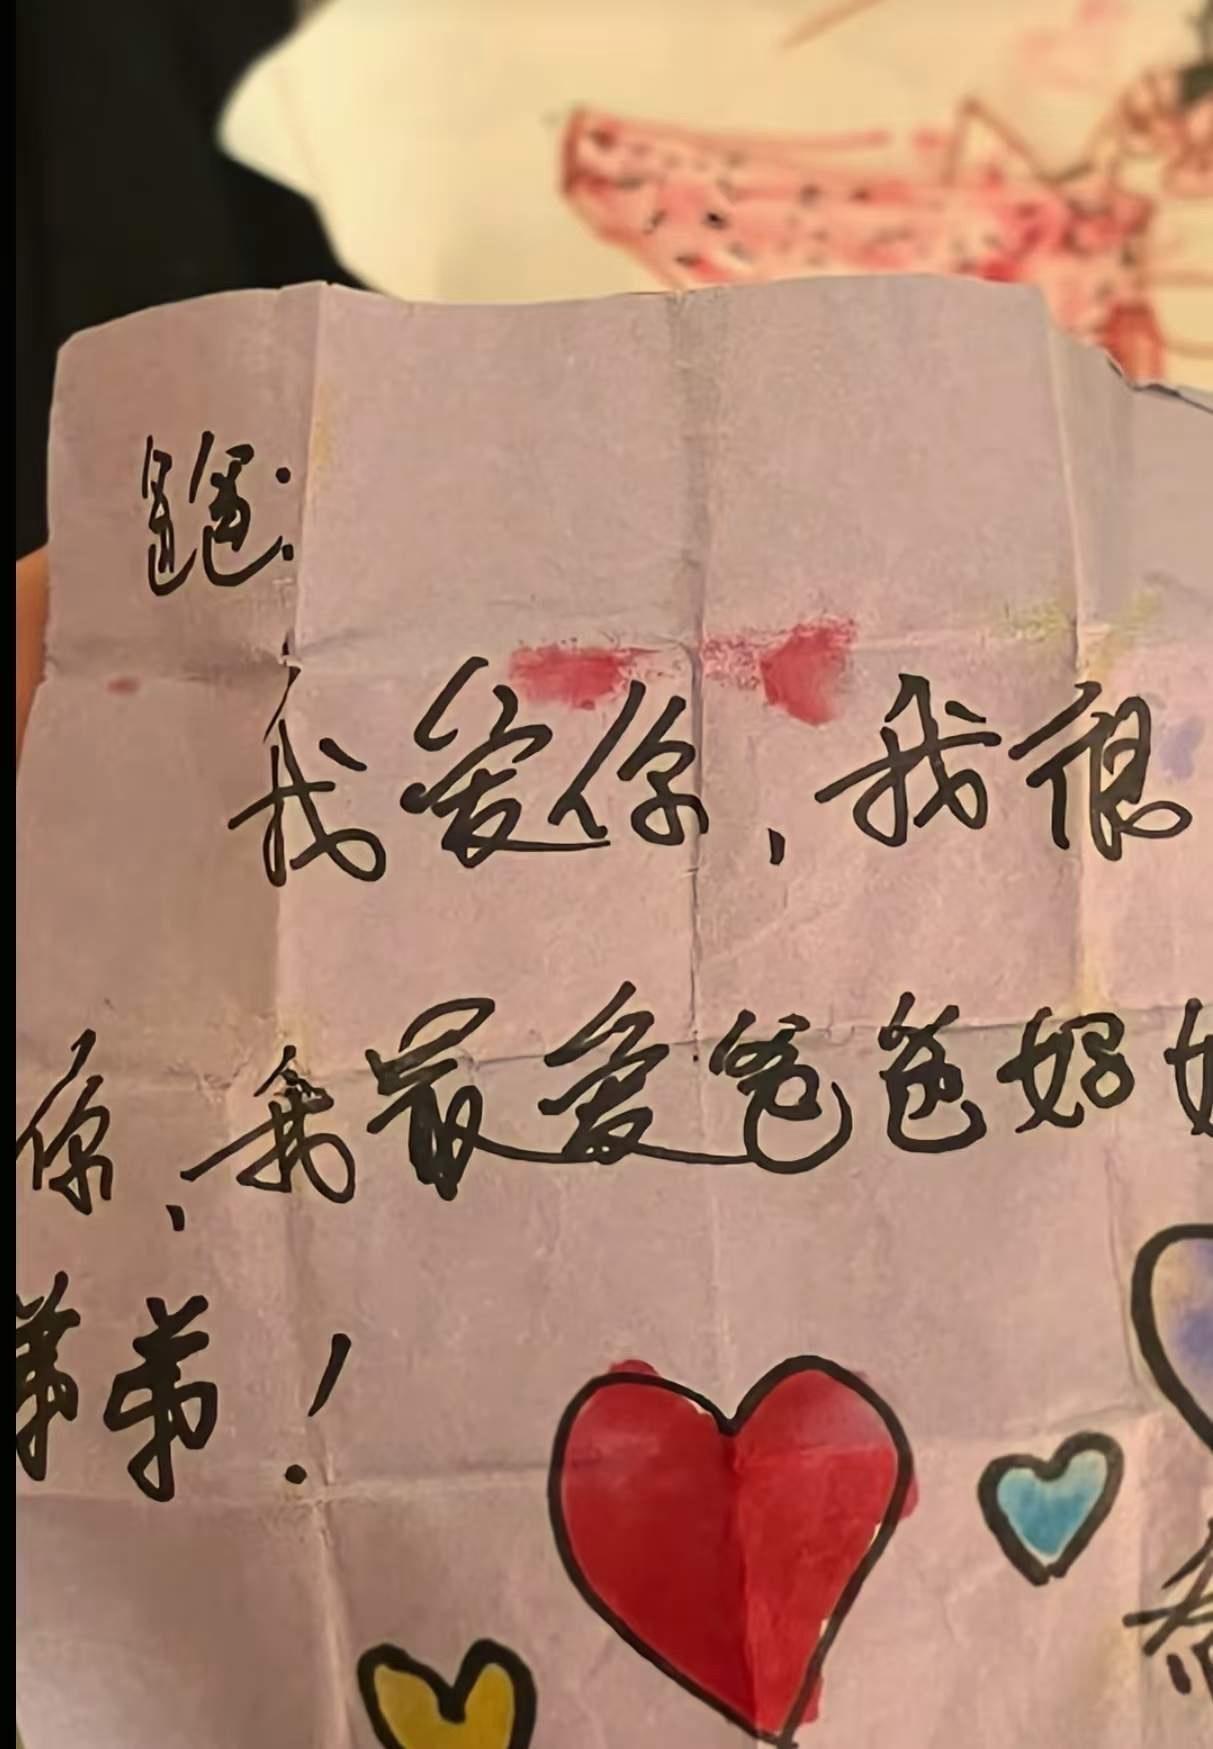 爸爸:
我爱你,我很
你,我最爱爸爸妈妈
弟弟!